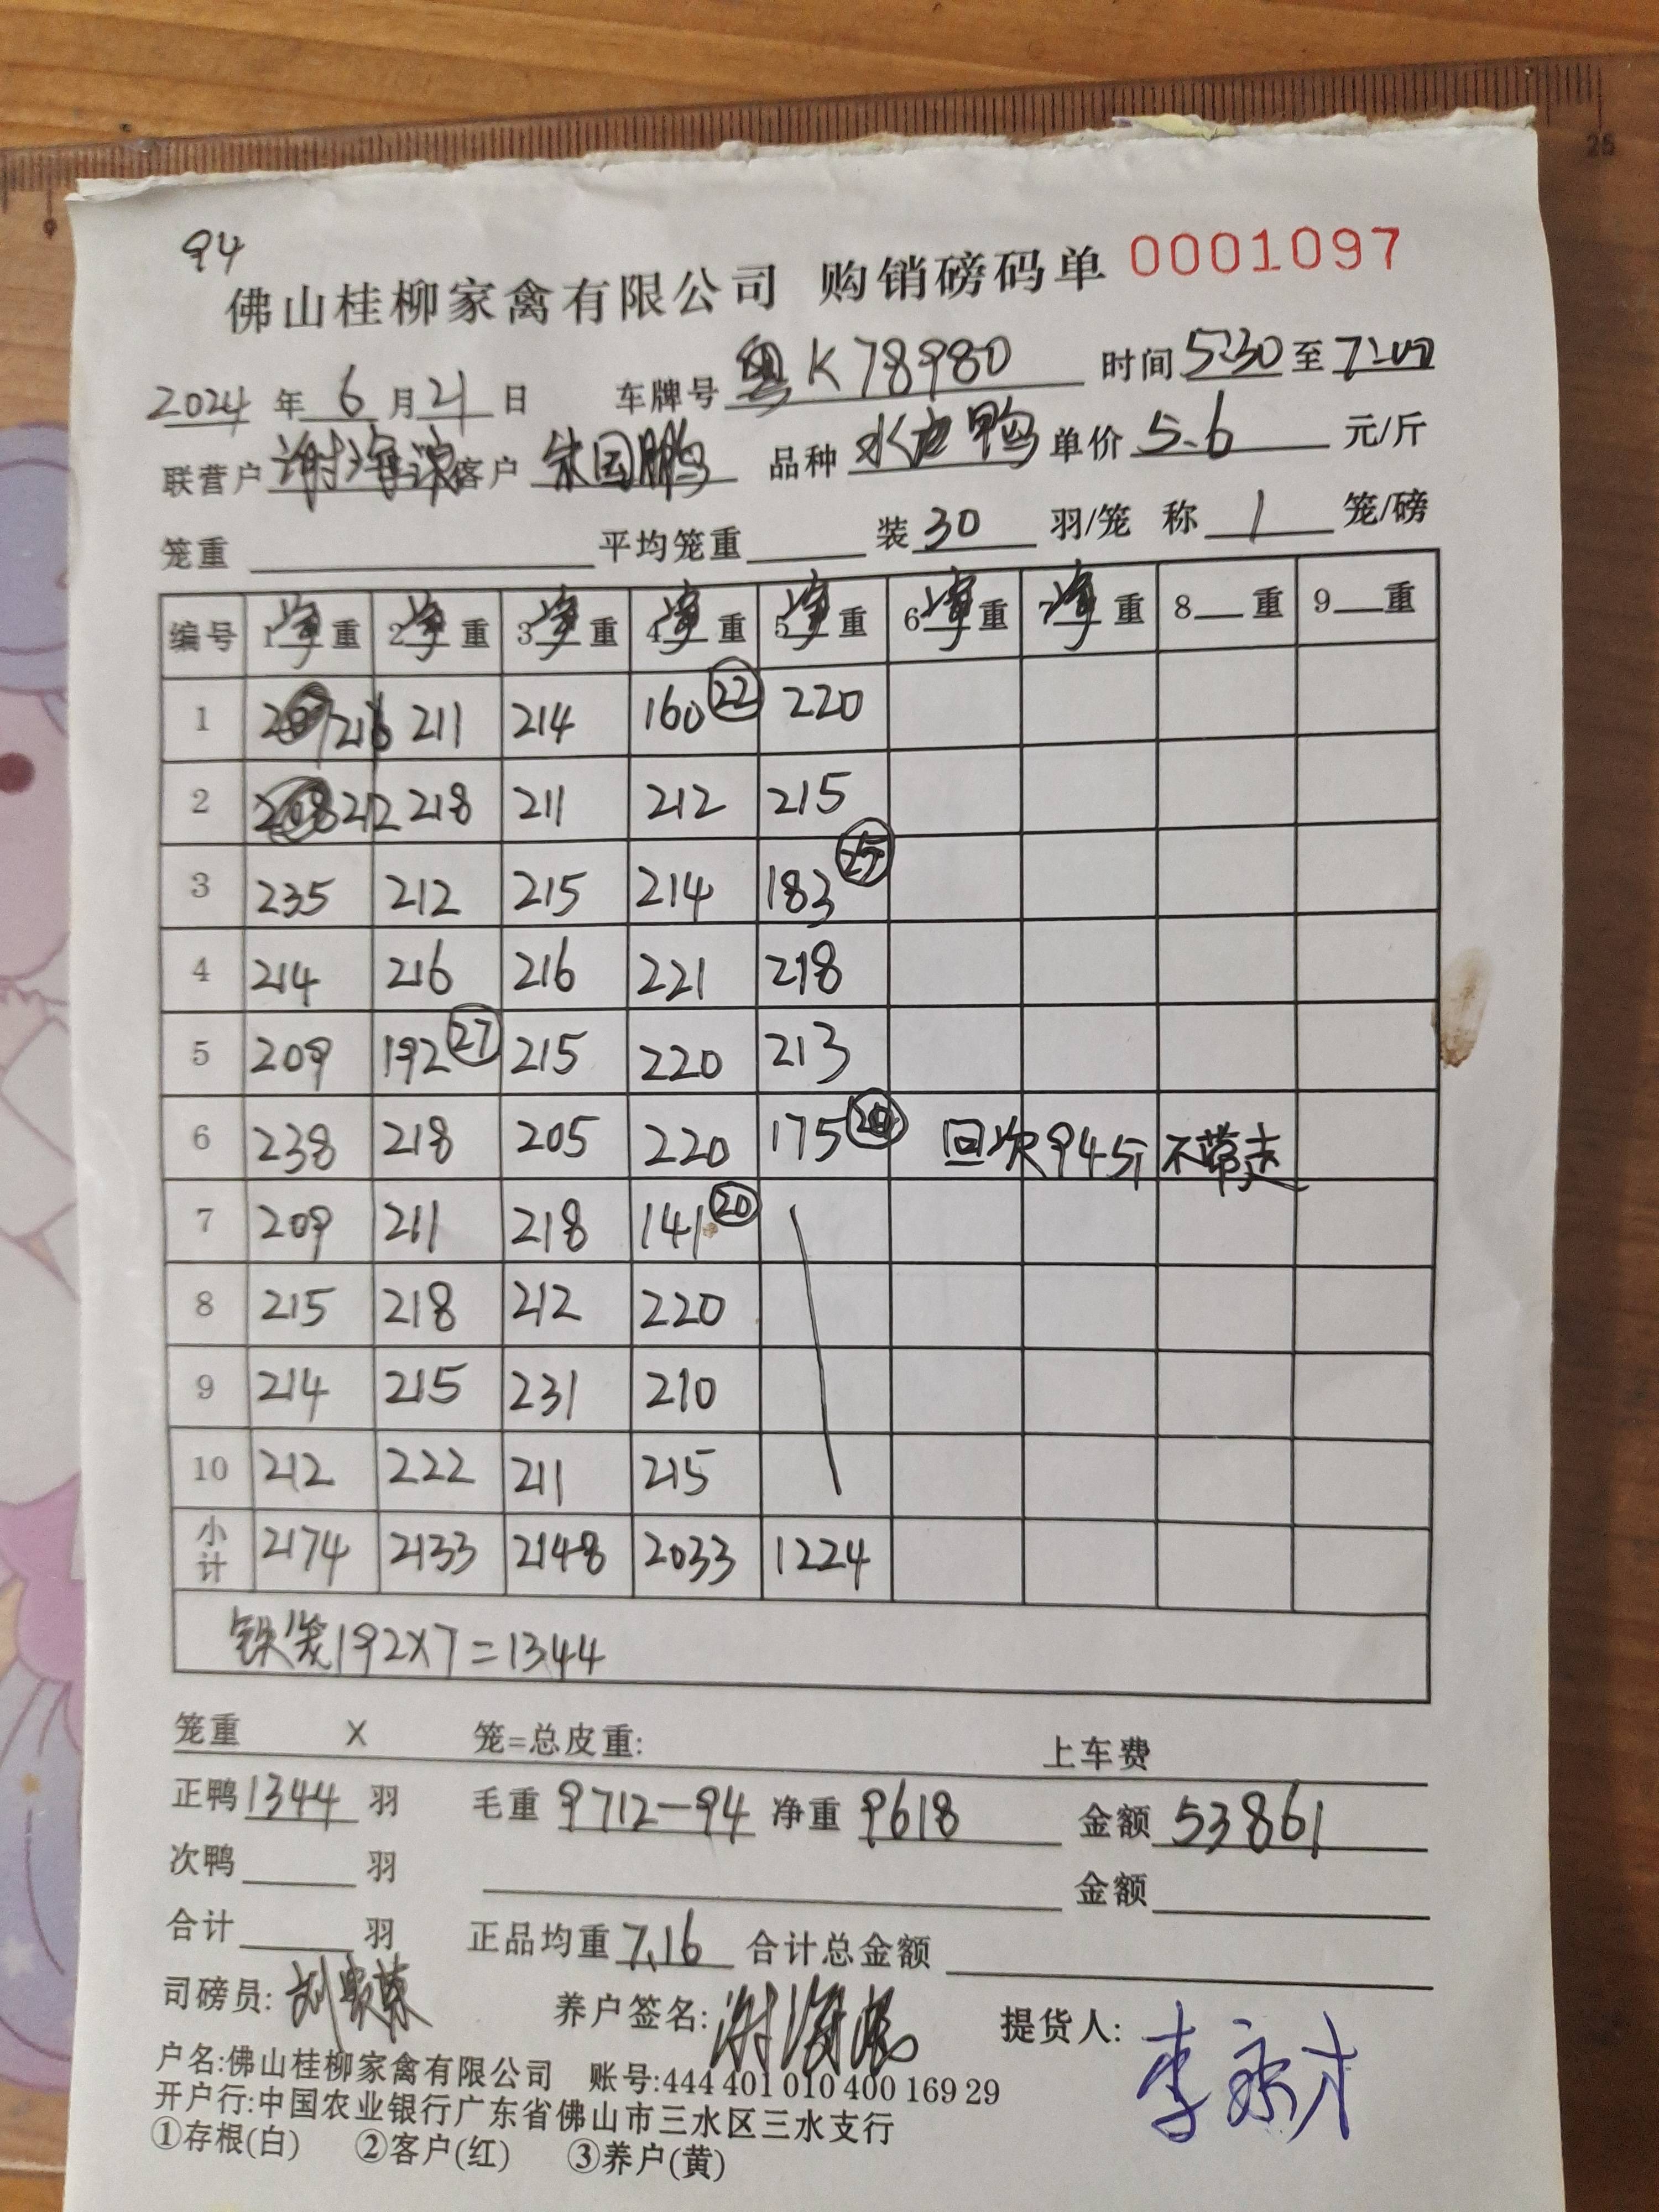 94
佛山桂柳家禽有限公司 购销磅码单 0001097
2024年6月21日 车牌号 粤K78980 时间 5:30 至 7:00
联营户 谢海滨 客户 朱国鹏 品种 水 鸭 单价 5.6 元/斤
笼重 平均笼重 装 30 羽/笼 称 1 笼/磅
编号 1净重 2净重 3净重 4净重 5净重 6净重 7净重 8 重 9 重
1 216 211 214 160 22 220
2 208 212 218 211 212 215
3 235 212 215 214 183 25
4 214 216 216 221 218
5 209 192 27 215 220 213
6 238 218 205 220 175 回次94斤 不带走
7 209 211 218 141 20
8 215 218 212 220
9 214 215 231 210
10 212 222 211 215
小计 2174 2133 2148 2033 1224
铁笼192X7=1344
笼重 X 笼=总皮重: 上车费
正鸭 1344 羽 毛重 9712-94 净重 9618 金额 53861
次鸭 羽 金额
合计 羽 正品均重 7.16 合计总金额
司磅员: 养户签名: 谢海滨 提货人: 李永才
户名:佛山桂柳家禽有限公司 账号:444 401 010 400 169 29
开户行:中国农业银行广东省佛山市三水区三水支行
①存根(白) ②客户(红) ③养户(黄)
9
25